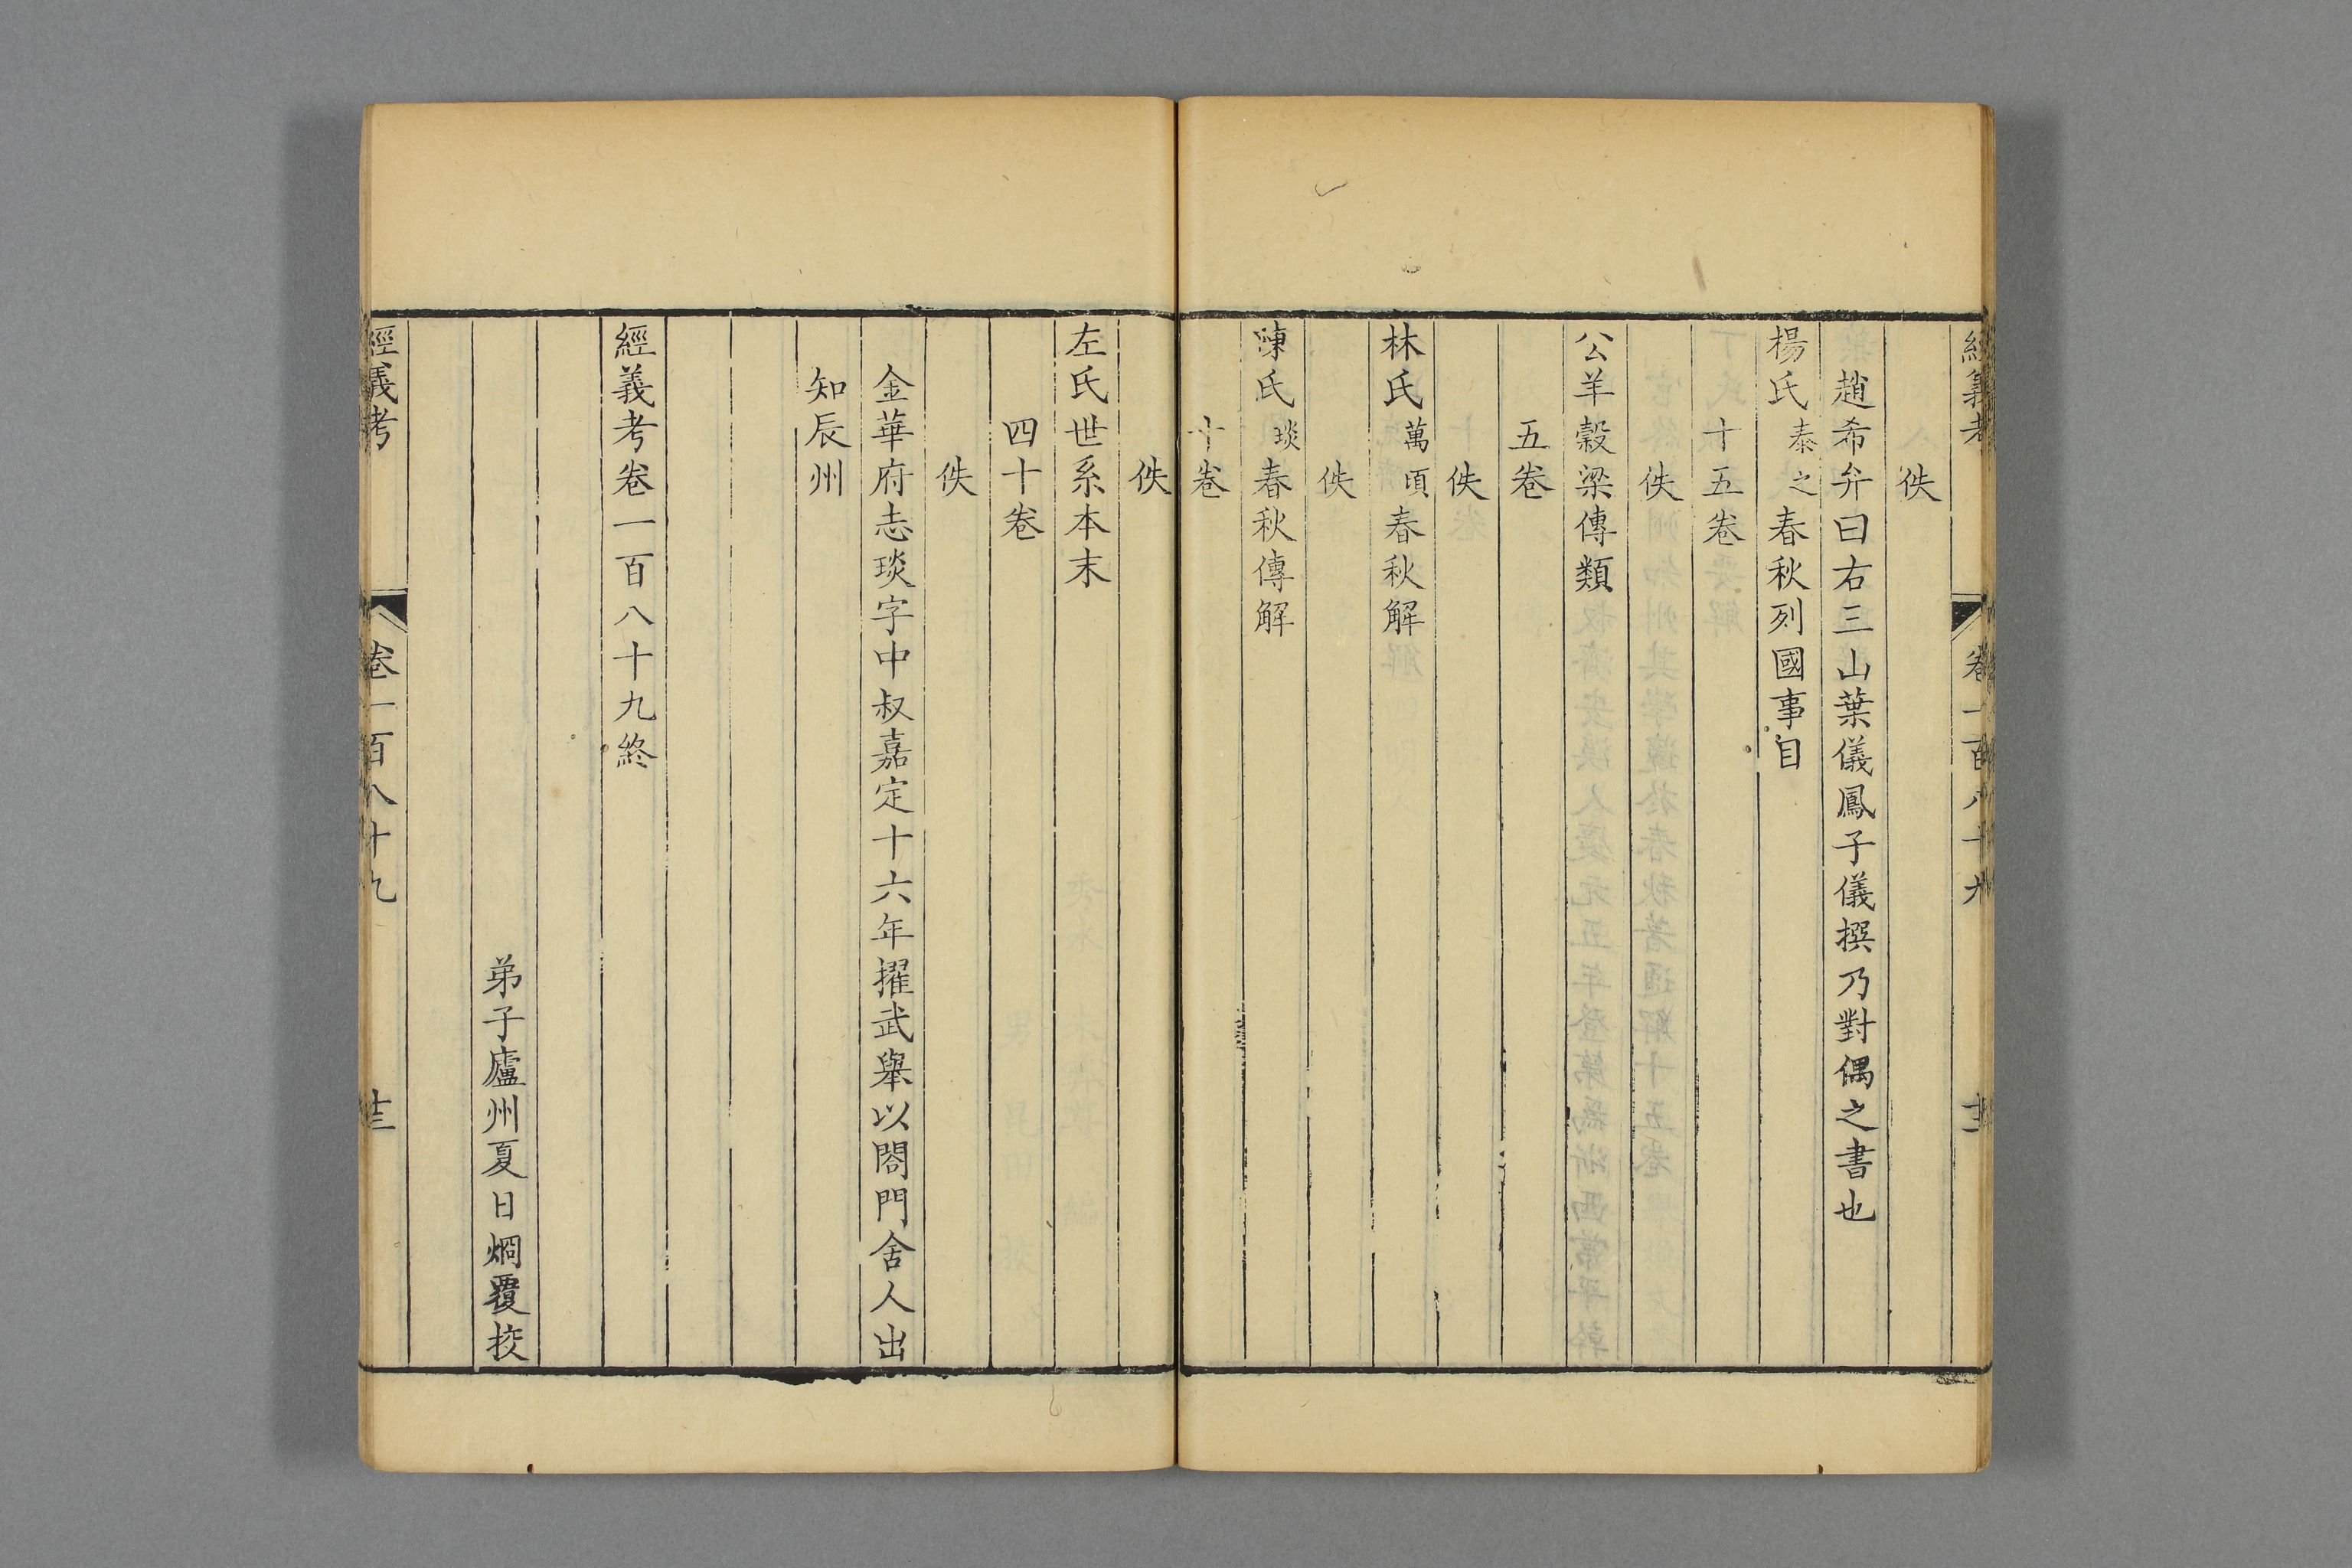 經義考 卷一百八十九 十二
佚
趙希弁曰右三山葉儀鳳子儀撰乃對偶之書也
楊氏泰之春秋列國事目
十五卷
佚
公羊穀梁傳類
五卷
佚
林氏萬頃春秋解
佚
陳氏琰春秋傳解
十卷
佚
左氏世系本末
四十卷
佚
金華府志琰字中叔嘉定十六年擢武舉以閤門舍人出
知辰州
經義考卷一百八十九終
弟子廬州夏日烱覆挍
經義考 卷一百八十九 十三